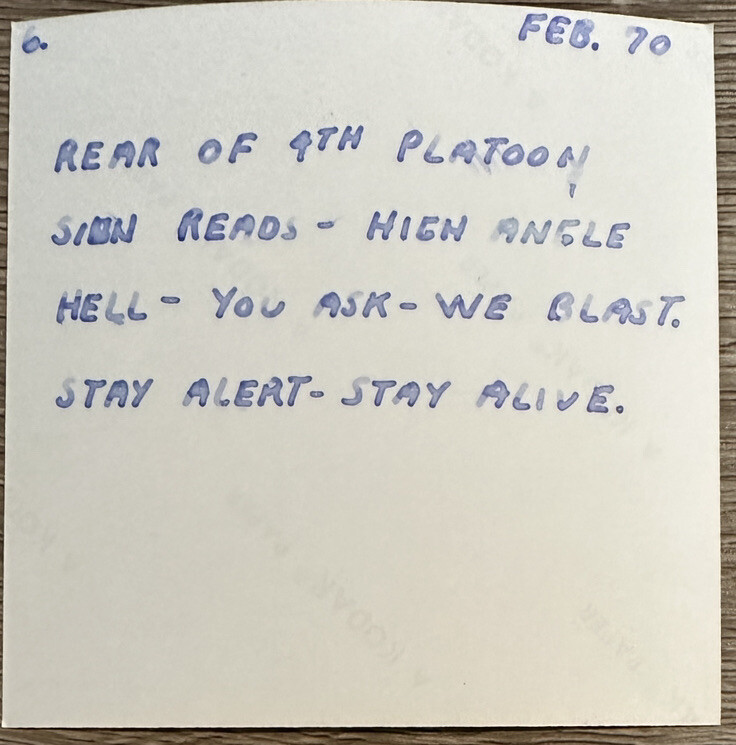 6. FEB. 70
REAR OF 4TH PLATOON,
SIGN READS - HIGH ANGLE
HELL - YOU ASK - WE BLAST.
STAY ALERT - STAY ALIVE.
KODAK
PAPER